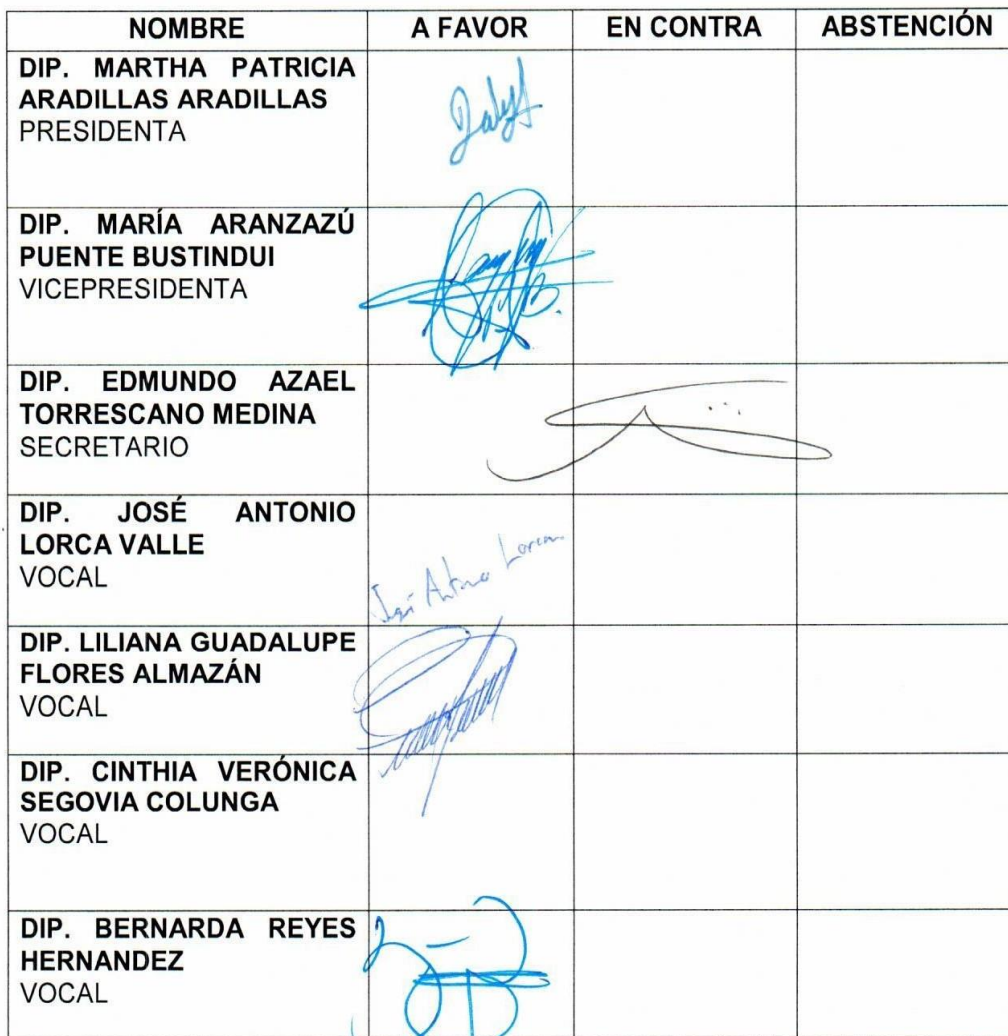 NOMBRE A FAVOR EN CONTRA ABSTENCIÓN
DIP. MARTHA PATRICIA
ARADILLAS ARADILLAS
PRESIDENTA
DIP. MARÍA ARANZAZÚ
PUENTE BUSTINDUI
VICEPRESIDENTA
DIP. EDMUNDO AZAEL
TORRESCANO MEDINA
SECRETARIO
DIP. JOSÉ ANTONIO
LORCA VALLE
VOCAL
José Antonio Lorca
DIP. LILIANA GUADALUPE
FLORES ALMAZÁN
VOCAL
DIP. CINTHIA VERÓNICA
SEGOVIA COLUNGA
VOCAL
DIP. BERNARDA REYES
HERNANDEZ
VOCAL